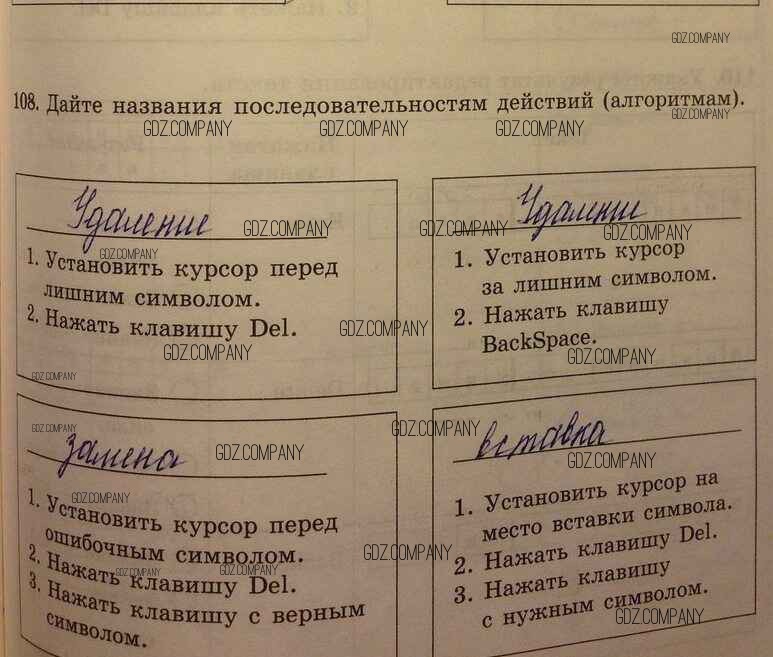 GDZ.COMPANY
108. Дайте названия последовательностям действий (алгоритмам).
GDZ.COMPANY
GDZ.COMPANY GDZ.COMPANY GDZ.COMPANY
Удаление
GDZ.COMPANY
GDZ.COMPANY
1. Установить курсор перед
лишним символом.
2. Нажать клавишу Del.
GDZ.COMPANY
GDZ.COMPANY
GDZ.COMPANY
Удаление
GDZ.COMPANY GDZ.COMPANY
1. Установить курсор
за лишним символом.
2. Нажать клавишу
BackSpace.
GDZ.COMPANY
замена
GDZ.COMPANY
GDZ.COMPANY
GDZ.COMPANY
1. Установить курсор перед
ошибочным символом.
2. Нажать клавишу Del.
GDZ.COMPANY GDZ.COMPANY
3. Нажать клавишу с верным
символом.
вставка
GDZ.COMPANY
GDZ.COMPANY
1. Установить курсор на
место вставки символа.
2. Нажать клавишу Del.
GDZ.COMPANY
3. Нажать клавишу
с нужным символом.
GDZ.COMPANY